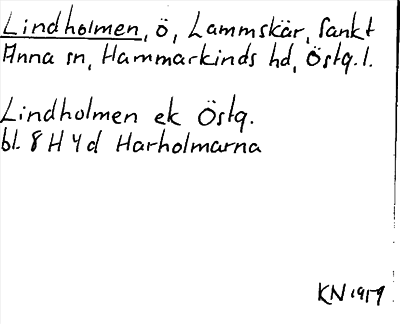 Lindholmen, ö, Lammskär, Sankt
Anna sn, Hammarkinds hd, Östg. l.
Lindholmen ek Östg.
bl. 8 H 4 d Harholmarna
KN